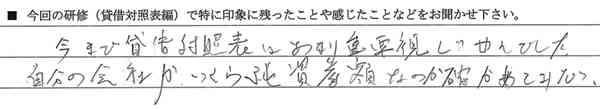 ■ 今回の研修(貸借対照表編)で特に印象に残ったことや感じたことなどをお聞かせ下さい。
今まで貸借対照表はあまり重要視しませんでした
自分の会社がいくら位資産額なのか確かめてみたい。